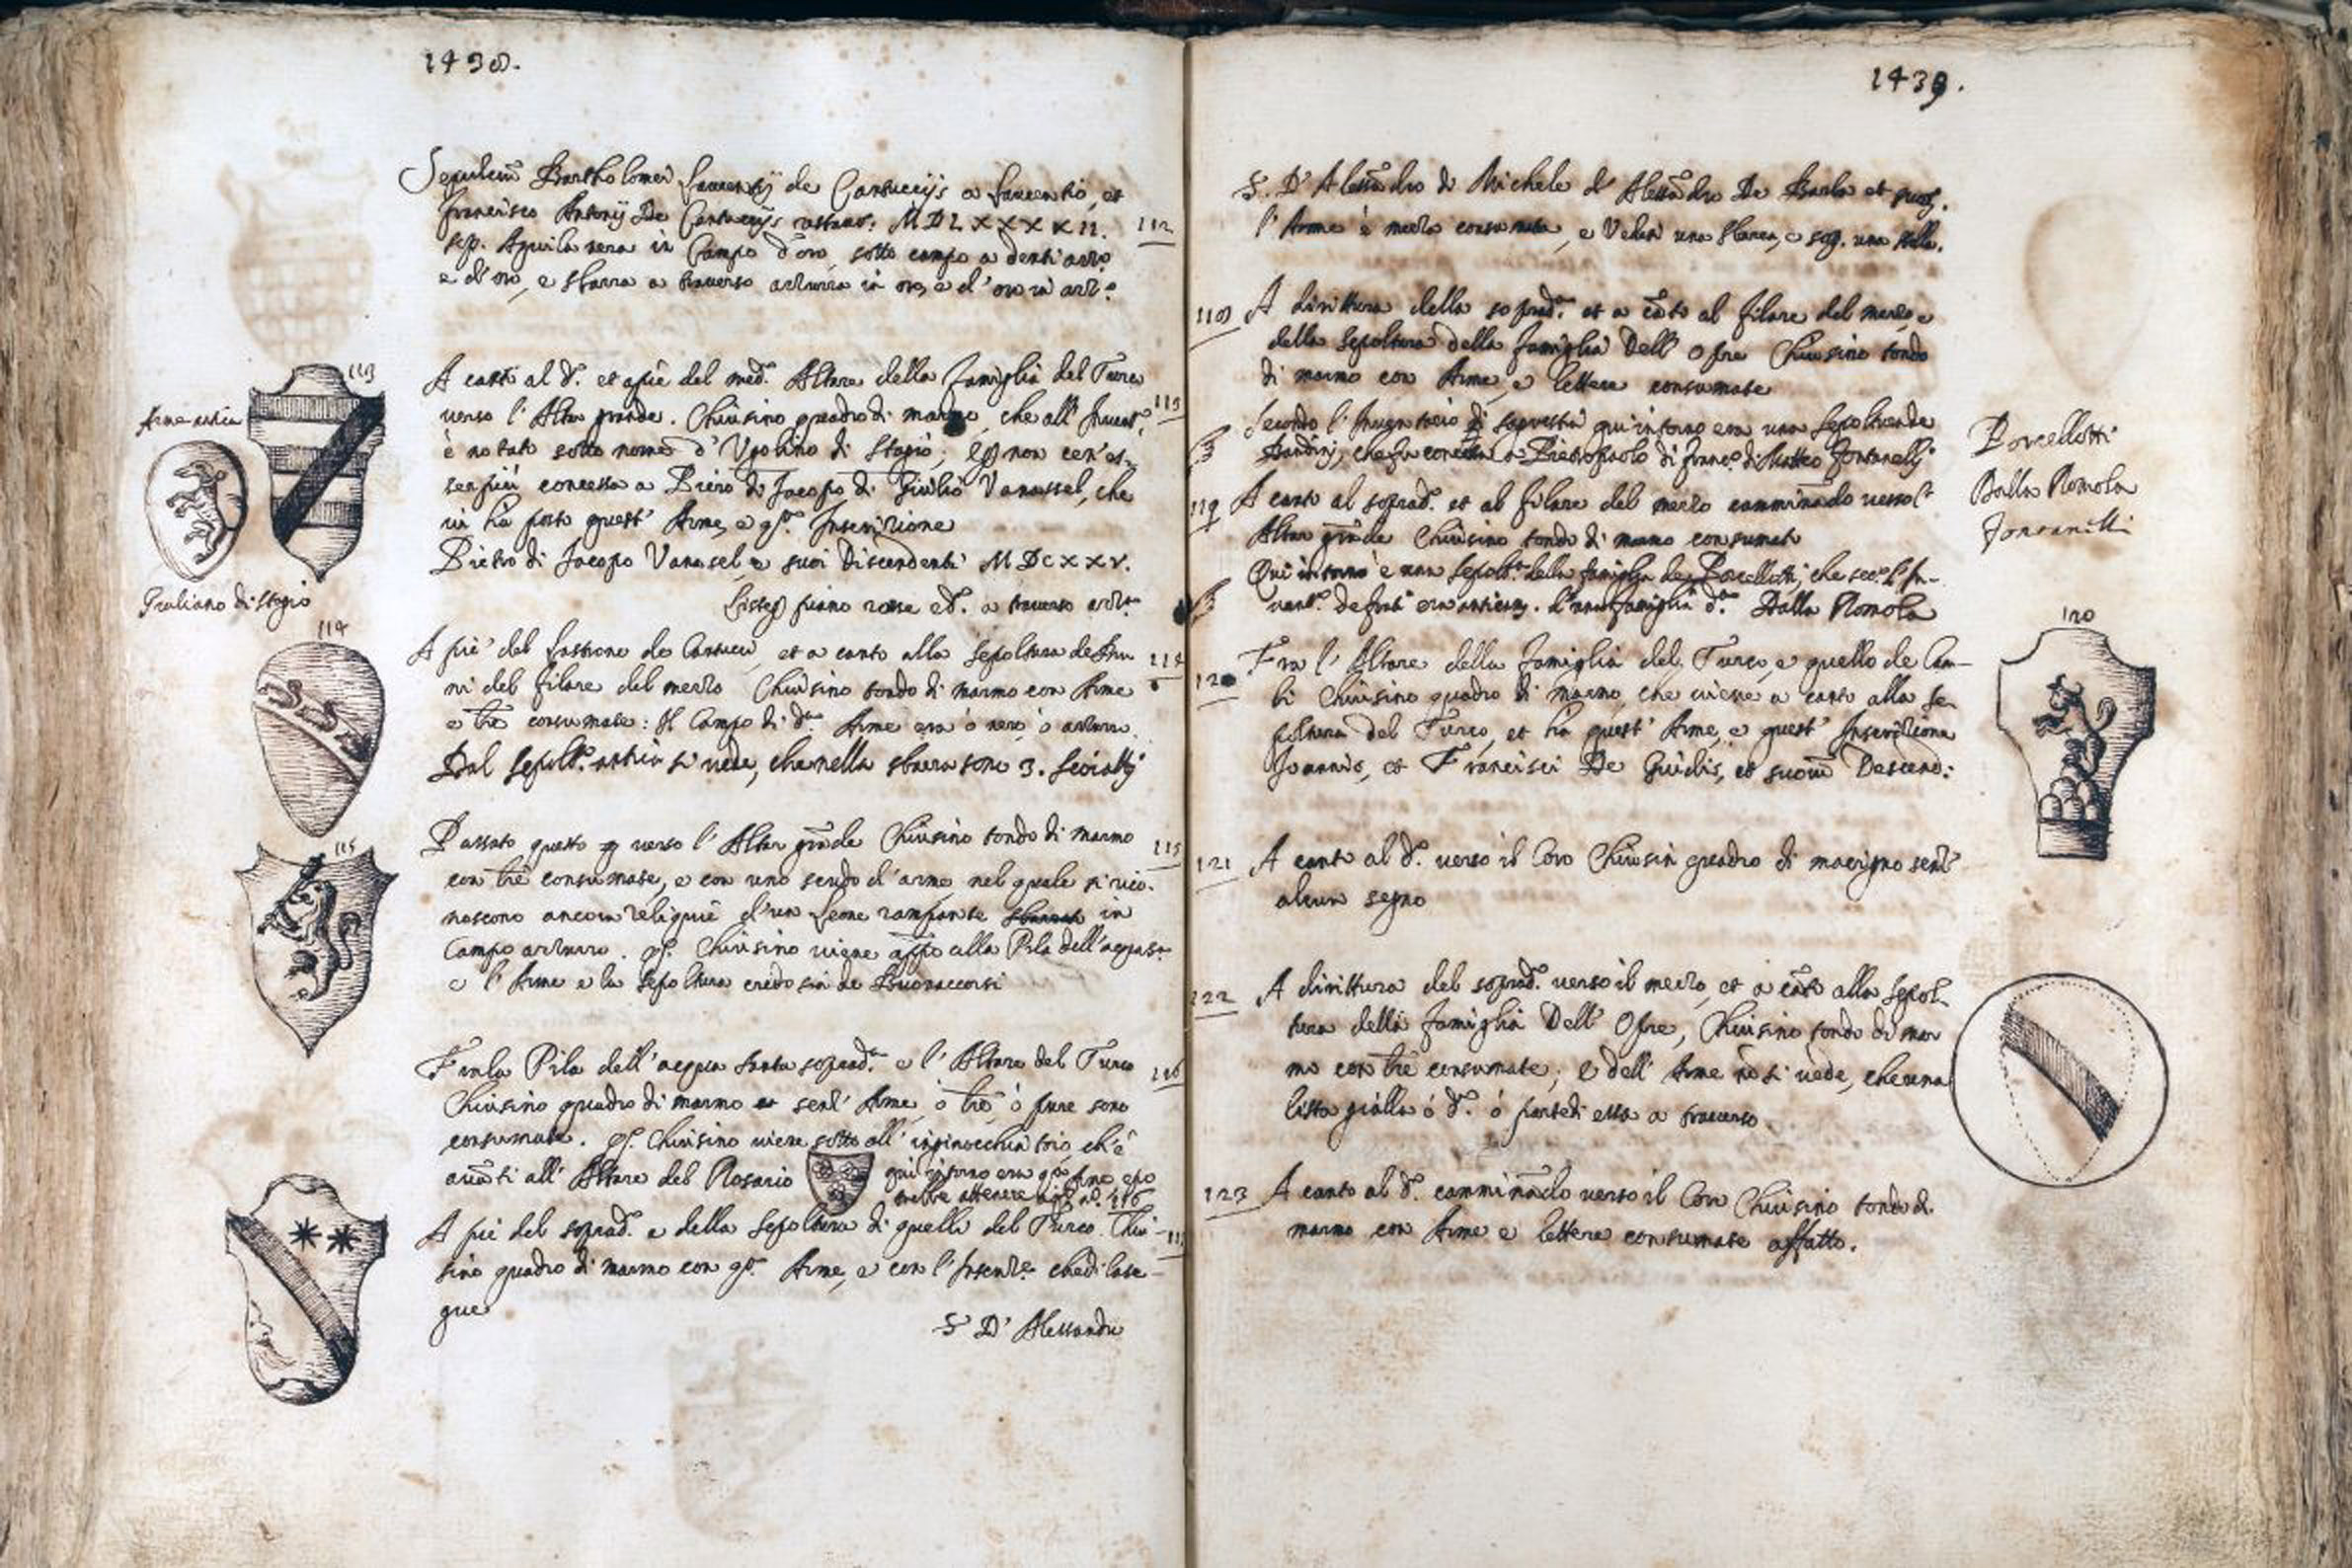 1438.
Sepulcrũ Bartholomei Laurentij de Cantuccijs a Laurentio, et
Francisco Antonij De Cantuccijs restaur: MDLXXXXII. 112
sep. Aquila nera in Campo d'oro, sotto campo a denti azzº.
e d'oro, e sbarra a trauerso azzurra in oro, e d'oro in azzº.
113
Arme antica
Giuliano di Stagio
A canto al dº. et a piè del medº. Altare della famiglia del Turco
verso l'Altar grande. Chiusino quadro di marmo, che all' Inuentº. 113
è notato sotto nome d'Ugolino di Stagio; non
ser più concessa a Piero di Jacopo di Giulio Vanassel, che
ui ha posto quest' Arme, e qstª. Inscrizione
Pietro di Jacopo Vanasel, e suoi Discendenti MDCXXV.
piano rosse ed. a trauerso azzª
114
A piè del lastrone de Cantucci, et a canto alla sepoltura de 114
ni del filare del mezzo Chiusino tondo di marmo con Arme
e lrẽ consumate: Il Campo di dª. Arme era ò nero, ò azzurro.
Dal sepoltº. antico si uede, che nella sbarra sono 3.
115
Passato questo verso l'Altar grãde Chiusino tondo di marmo 115
con lrẽ consumate, e con uno scudo d'arme nel quale si rico-
noscono ancora reliquie d'un Leone rampante in
Campo azzurro. qº. Chiusino uiene aᵖpº alla Pila dell'acqua sª
e l'Arme e la sepoltura credo sia de Buonaccorsi
Fra la Pila dell'acqua santa sopradª. e l'Altare del Turco 116
Chiusino quadro di marmo senz' Arme, ò lrẽ ò pure sono
consumate. qº. Chiusino uiene sotto all' inginocchiatoio, ch'è
auãti all' Altare del Rosario qui intorno era qstª Arme, e po
trebbe attenere al nº. 116
A piè del sopradº. e della sepoltura di quelli del Turco. Chiu-
sino quadro di marmo con qstª. Arme, e con l'Inscrizº. che di la se-
gue
S. D' Alessandro
1439.
S. D' Alessãdro di Michele d' Alessãdro De Barla et suoȝ.
l'Arme è mezza consumata, e Vedesi una sbarra, e sop. una stella.
118 A dirittura della sopradª. et a cãto al filare del mezzo, e
della sepoltura della famiglia Dell' Opre Chiusino tondo
di marmo con Arme, e lettere consumate
Secondo l'Inuentario di sagrestia qui intorno era una sepoltura de
Bandini, che fu concessa a Pietropaolo di Francº. di Matteo Fontanelli
119 A canto al sopradº. et al filare del mezzo camminando verso lº
Altar grãde Chiusino tondo di marmo consumato
Qui intorno è una sepoltª. della famiglia de Porcellotti, che secº. l'In-
uentº. de frati era anticam. d'una famiglia dª. Dalla Romola
Porcellotti
Dalla Romola
Fontanelli
120 Fra l'Altare della famiglia del Turco, e quello de Cam-
bi Chiusino quadro di marmo, che uiene a canto alla se-
poltura del Turco, et ha quest' Arme, e quest' Inscrizione
Joannis, et Francisci De Guidis, et suorũ Descend:
120
121 A canto al dº. verso il Coro Chiusin quadro di macigno senz'
alcun segno
122 A dirittura del sopradº. verso il mezzo, et a cãto alla sepol-
tura della famiglia Dell' Opre, Chiusino tondo di mar
mo con lrẽ consumate; e dell' Arme nõ si uede, che una
lista gialla ò dº. ò parte di essa a trauerso.
123 A canto al dº. camminãdo verso il Coro Chiusino tondo di
marmo con Arme e lettere consumate affatto.